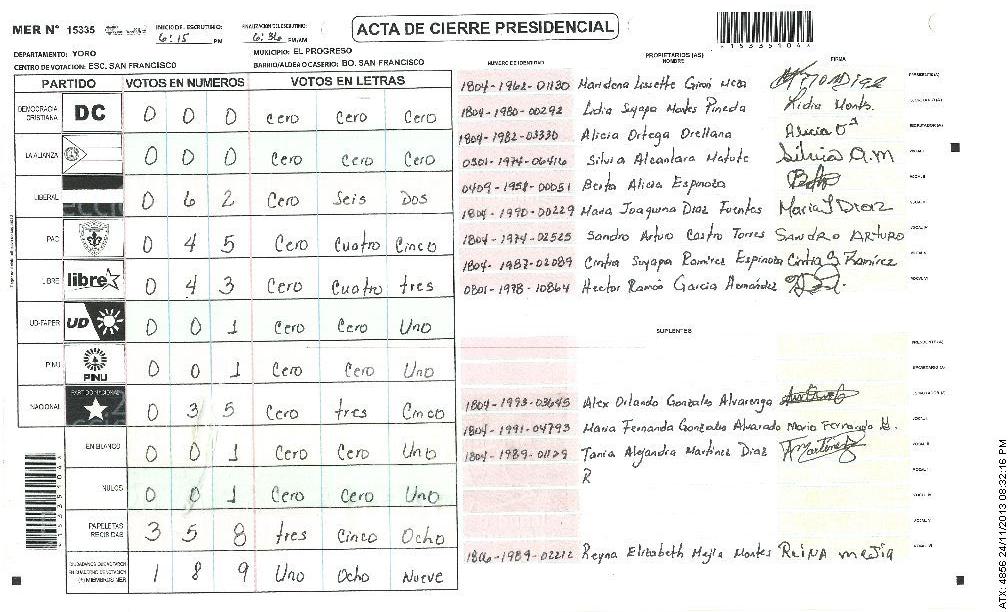 MER Nº 15335
INICIO DE ESCRUTINIO: 6:15 PM
FINALIZACION ESCRUTINIO: 6:36 PM/AM
ACTA DE CIERRE PRESIDENCIAL
*153351041*
DEPARTAMENTO: YORO
MUNICIPIO: EL PROGRESO
CENTRO DE VOTACION: ESC. SAN FRANCISCO
BARRIO/ALDEA O CASERIO: BO. SAN FRANCISCO
PARTIDO VOTOS EN NUMEROS VOTOS EN LETRAS
DEMOCRACIA CRISTIANA DC 0 0 0 Cero Cero Cero
LA ALIANZA 0 0 0 Cero Cero Cero
LIBERAL 0 6 2 Cero Seis Dos
PAC 0 4 5 Cero Cuatro Cinco
LIBRE libre 0 4 3 Cero Cuatro tres
UD-FAPER UD 0 0 1 Cero Cero Uno
PINU PINU 0 0 1 Cero Cero Uno
NACIONAL PARTIDO NACIONAL 0 3 5 Cero tres Cinco
EN BLANCO 0 0 1 Cero Cero Uno
NULOS 0 0 1 Cero Cero Uno
PAPELETAS RECIBIDAS 3 5 8 tres Cinco Ocho
1 8 9 Uno Ocho Nueve
NUMERO DE IDENTIDAD
PROPIETARIOS (AS)
NOMBRE
FIRMA
1804-1962-01130 Maridena Lissette Giron Meza
1804-1980-00292 Lidia Suyapa Montes Pineda Lidia Monts.
1804-1982-03330 Alicia Ortega Orellana Alicia Oª
0301-1974-06416 Silvia Alcantara Matute Silvia A.M
0409-1958-00051 Berta Alicia Espinoza
1804-1990-00229 Maria Joaquina Diaz Fuentes Maria J Diaz
1804-1974-02525 Sandro Arturo Castro Torres SANDRO ARTURO
1804-1987-02089 Cintia Suyapa Ramirez Espinoza Cintia S Ramirez
0801-1978-10864 Hector Ramon Garcia Hernández
SUPLENTES
1804-1993-03645 Alex Orlando Gonzales Alvarenga
1804-1991-04793 Maria Fernanda Gonzales Alvarado Maria Fernanda G.
1804-1989-01129 Tania Alejandra Martinez Diaz TMartinez
R
1806-1989-02212 Reyna Elizabeth Mejia Montes REINA mejia
ATX: 4856 24/11/2013 08:32:16 PM